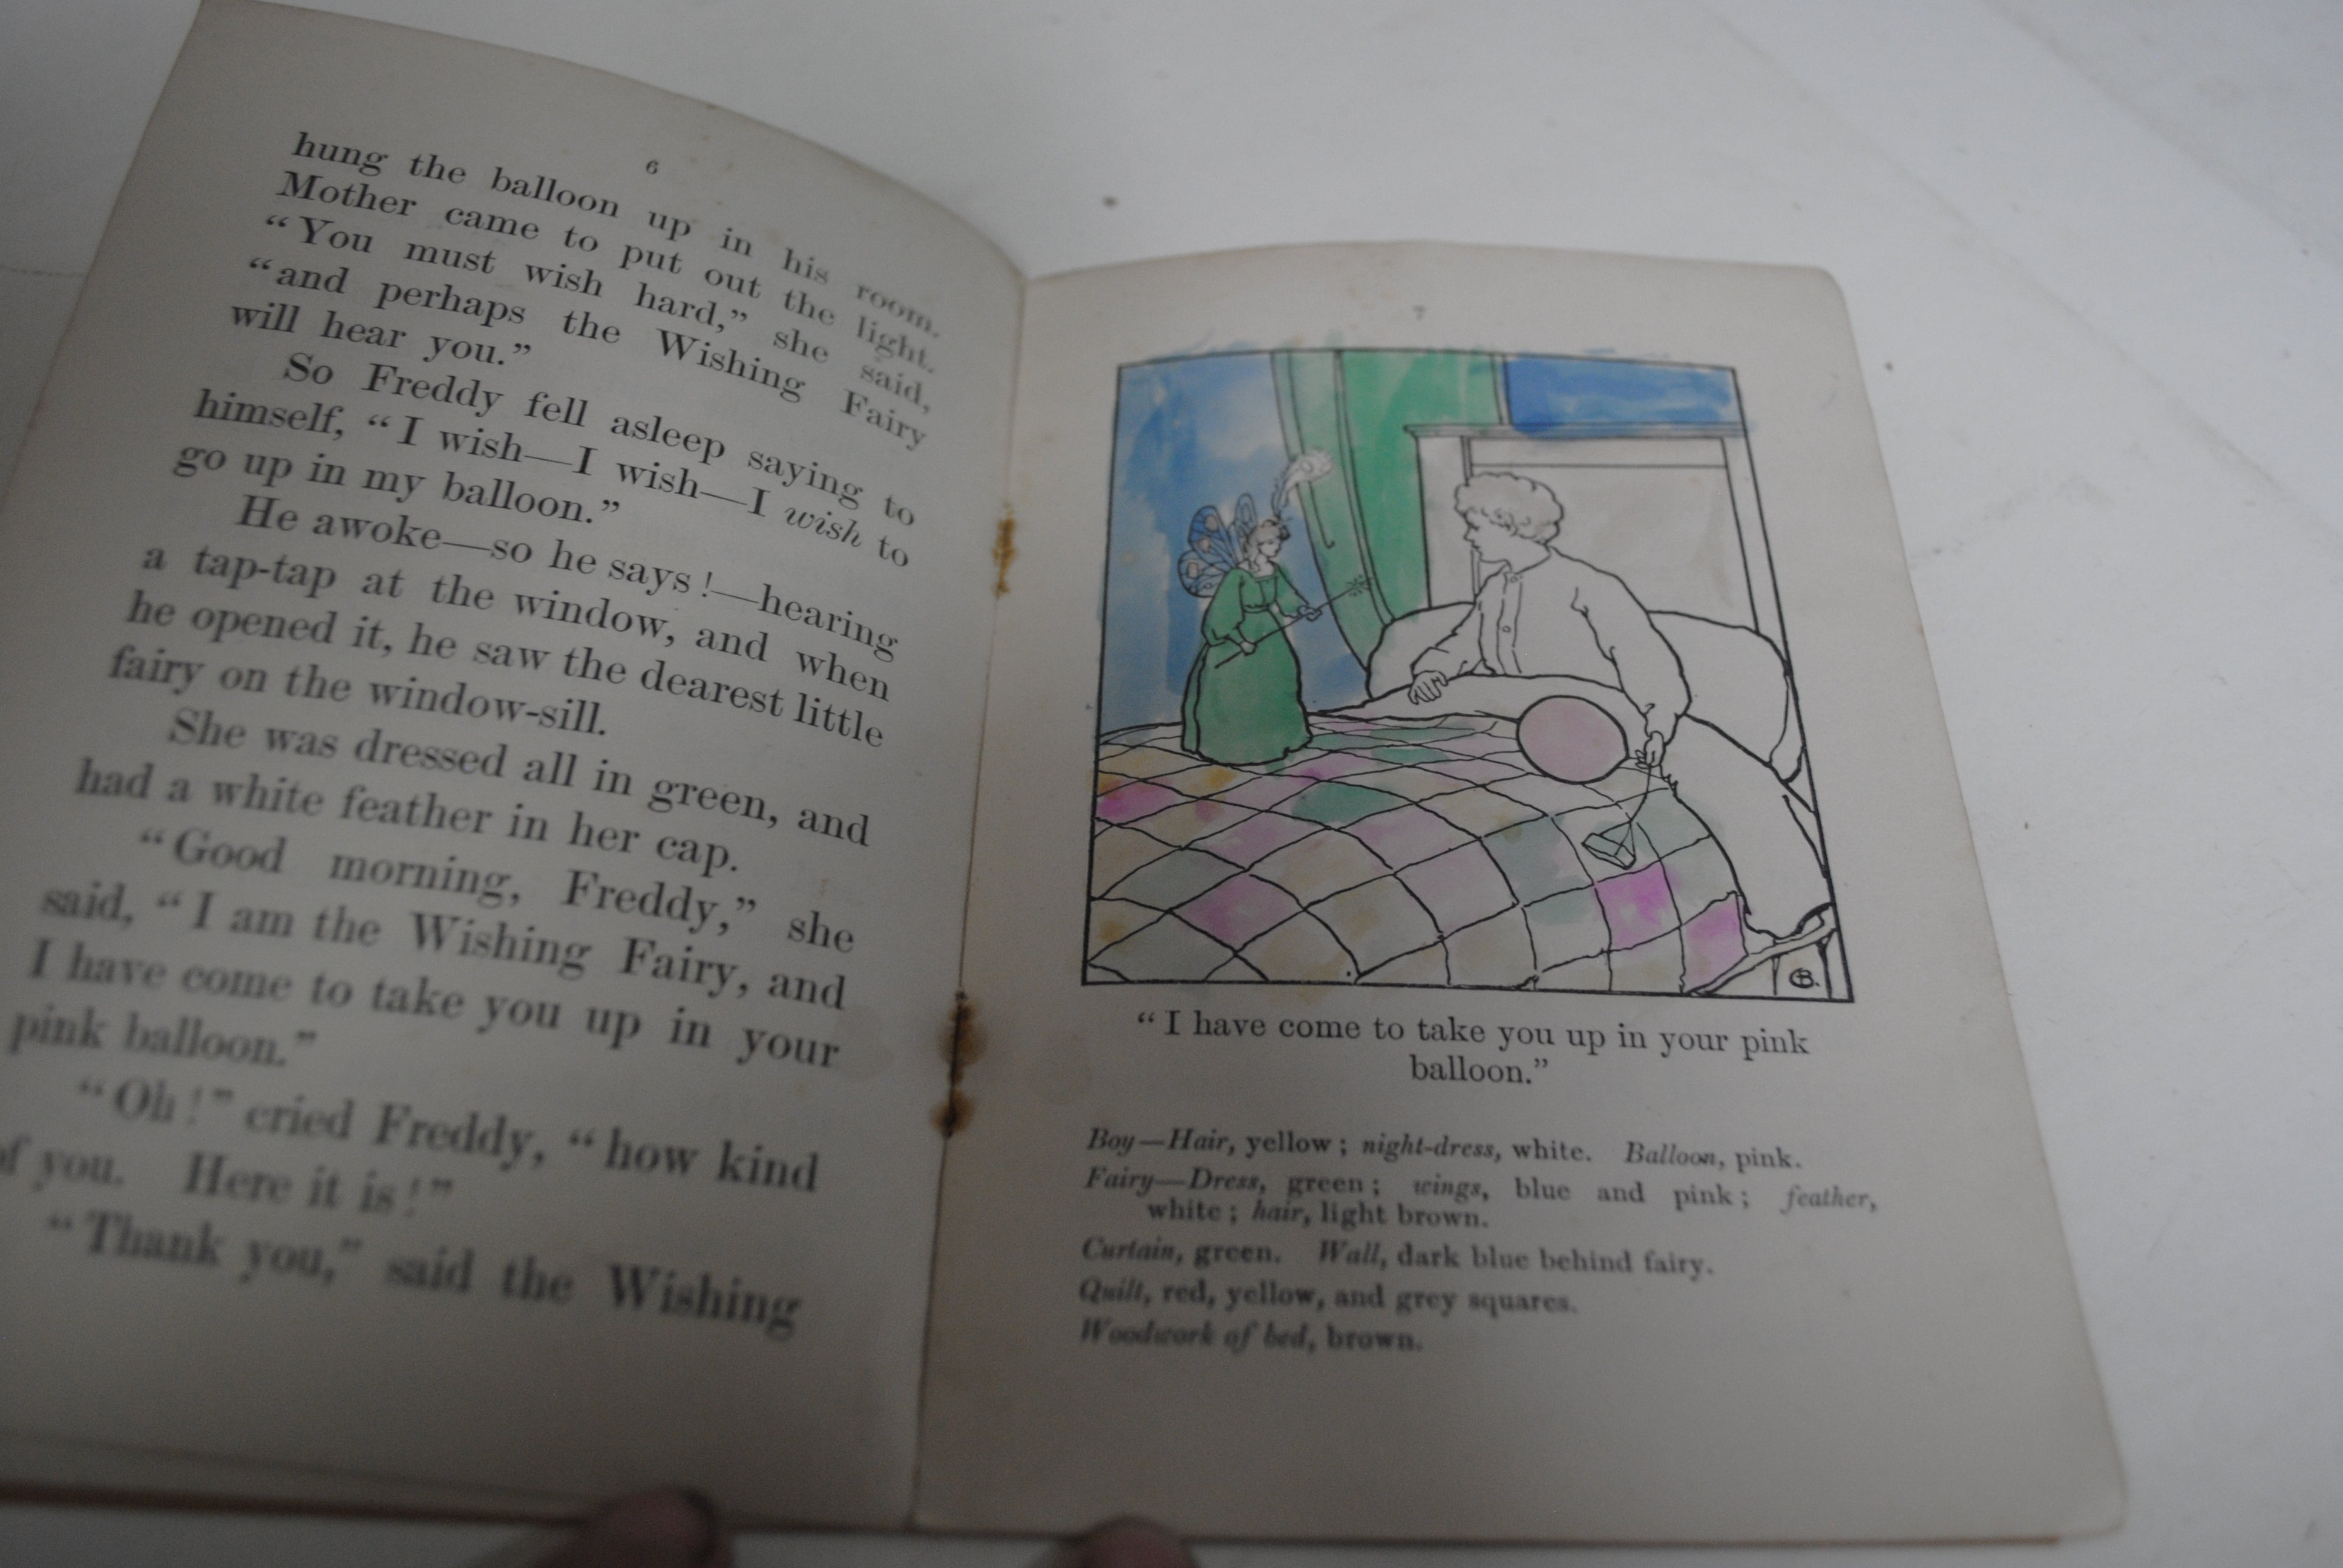 6
hung the balloon up in his room.
Mother came to put out the light.
“You must wish hard,” she said,
“and perhaps the Wishing Fairy
will hear you.”
So Freddy fell asleep saying to
himself, “I wish—I wish—I wish to
go up in my balloon.”
He awoke—so he says!—hearing
a tap-tap at the window, and when
he opened it, he saw the dearest little
fairy on the window-sill.
She was dressed all in green, and
had a white feather in her cap.
“Good morning, Freddy,” she
said, “I am the Wishing Fairy, and
I have come to take you up in your
pink balloon.”
“Oh!” cried Freddy, “how kind
of you. Here it is!”
“Thank you,” said the Wishing
7
CB.
“I have come to take you up in your pink
balloon.”
Boy—Hair, yellow; night-dress, white. Balloon, pink.
Fairy—Dress, green; wings, blue and pink; feather,
white; hair, light brown.
Curtain, green. Wall, dark blue behind fairy.
Quilt, red, yellow, and grey squares.
Woodwork of bed, brown.